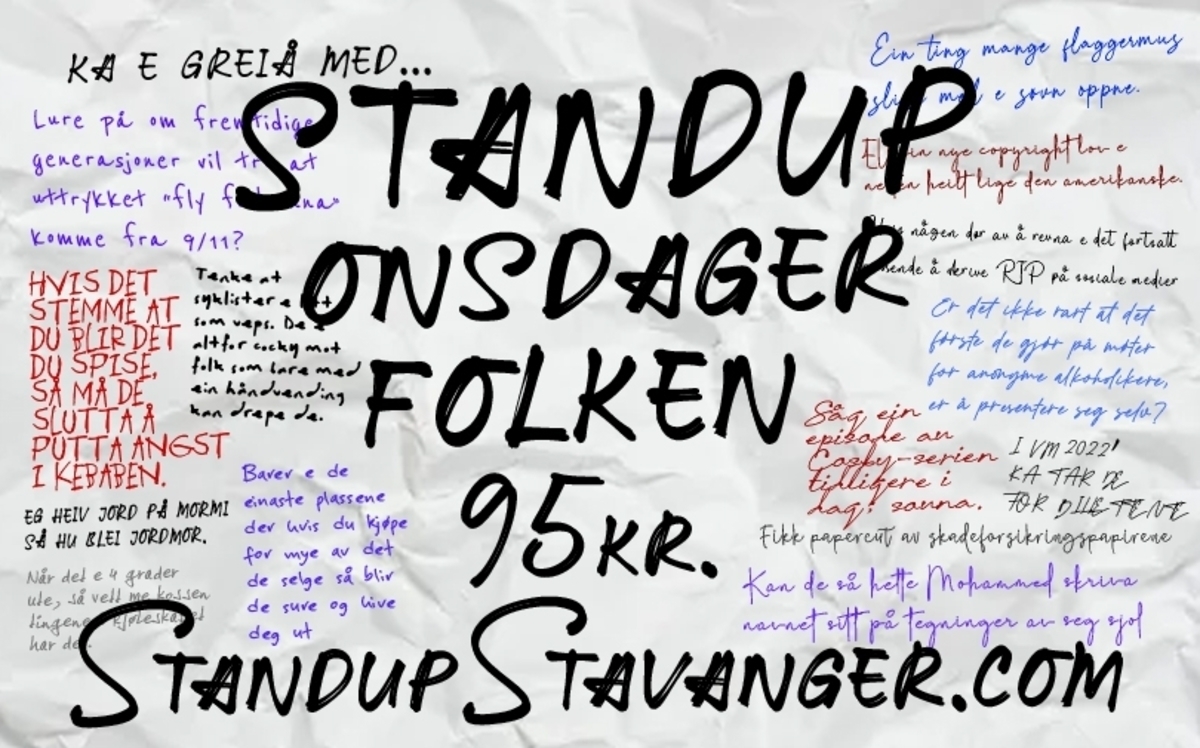 KA E GREIÅ MED...
STANDUP
ONSDAGER
FOLKEN
95KR.
STANDUPSTAVANGER.COM
Lure på om fremtidige
generasjoner vil tro at
uttrykket "fly
komme fra 9/11?
HVIS DET
STEMME AT
DU BLIR DET
DU SPISE,
SÅ MÅ DE
SLUTTA Å
PUTTA ANGST
I KEBABEN.
Tenke at
syklister e litt
som veps. De e
altfor cocky mot
folk som bare med
ein håndvending
kan drepe de.
EG HEIV JORD PÅ MORMI
SÅ HU BLEI JORDMOR.
Når det e 4 grader
ute, så vett me kossen
tingene kjøleskapet
har de.
Barer e de
einaste plassene
der hvis du kjøpe
for mye av det
de selge så bliv
de sure og hive
deg ut
Ein ting mange flaggermus
med e søvn oppne.
ein nye copyright lov e
nesten heilt lige den amerikanske.
Hvis någen dør av å revna e det fortsatt
å derive RIP på sosiale medier
Er det ikke rart at det
første de gjør på møter
for anonyme alkoholikere,
er å presentere seg selv?
Såg ein
episode av
Cosby-serien
tidligere i
dag? sauna.
I VM 2022'
KA TAR DE
FOR DILLETENE
Fikk papercut av skadeforsikringspapirene
Kan de så hette Mohammed skriva
navnet sitt på tegninger av seg sjøl